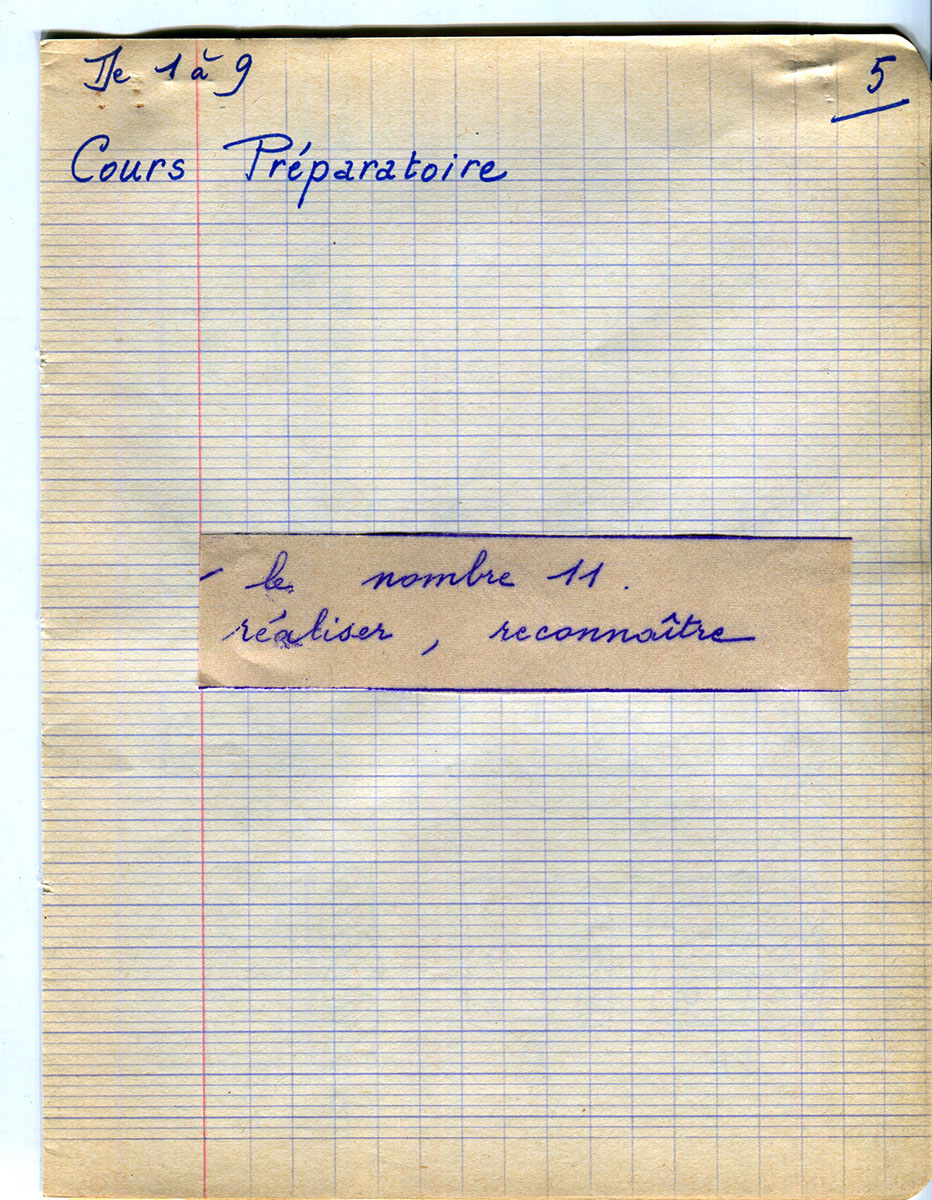 De 1 à 9
5
Cours Préparatoire
- le nombre 11.
réaliser, reconnaître